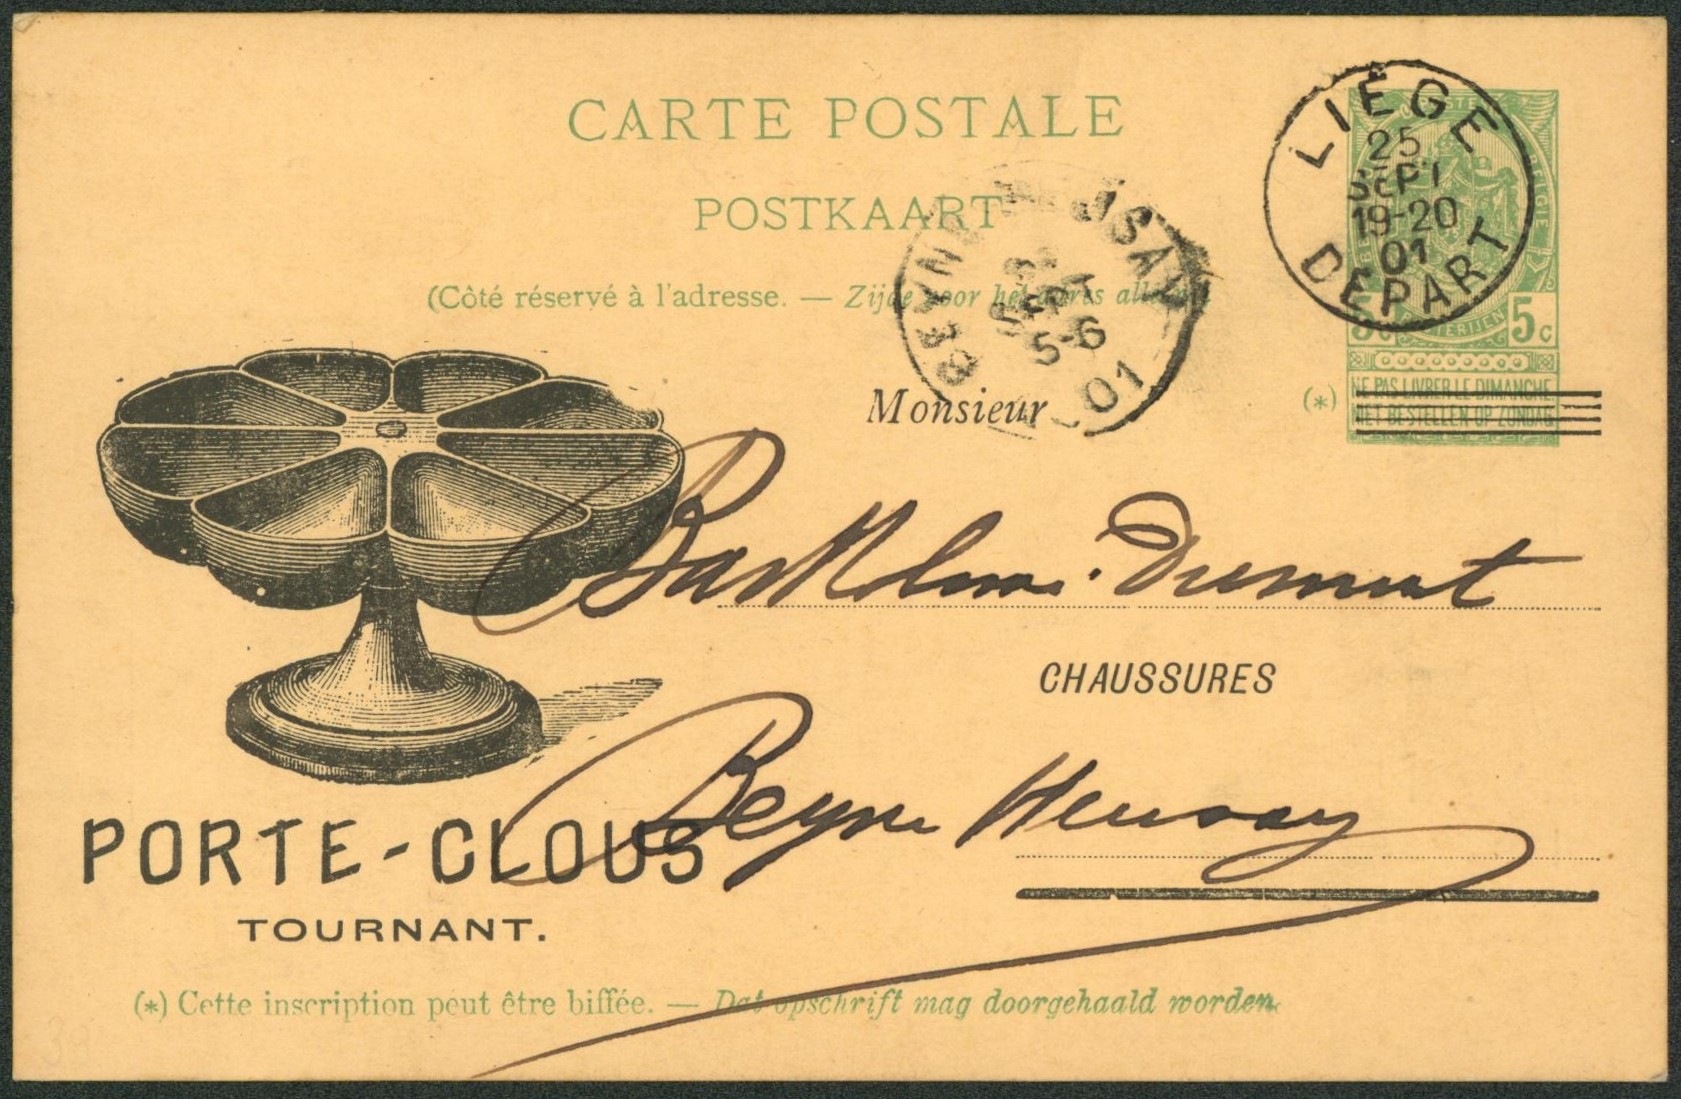 CARTE POSTALE
POSTKAART
(Côté réservé à l'adresse. — Zijde voor het adres
LIÉGE
25
SEPT
19-20
01
DÉPART
BEYNE
SEPT
5-6
01
5c 5c
NE PAS LIVRER LE DIMANCHE
NIET BESTELLEN OP ZONDAG
(*)
Monsieur
Dumont
CHAUSSURES
Beyne Heusay
PORTE-CLOUS
TOURNANT.
(*) Cette inscription peut être biffée. — Dat opschrift mag doorgehaald worden.